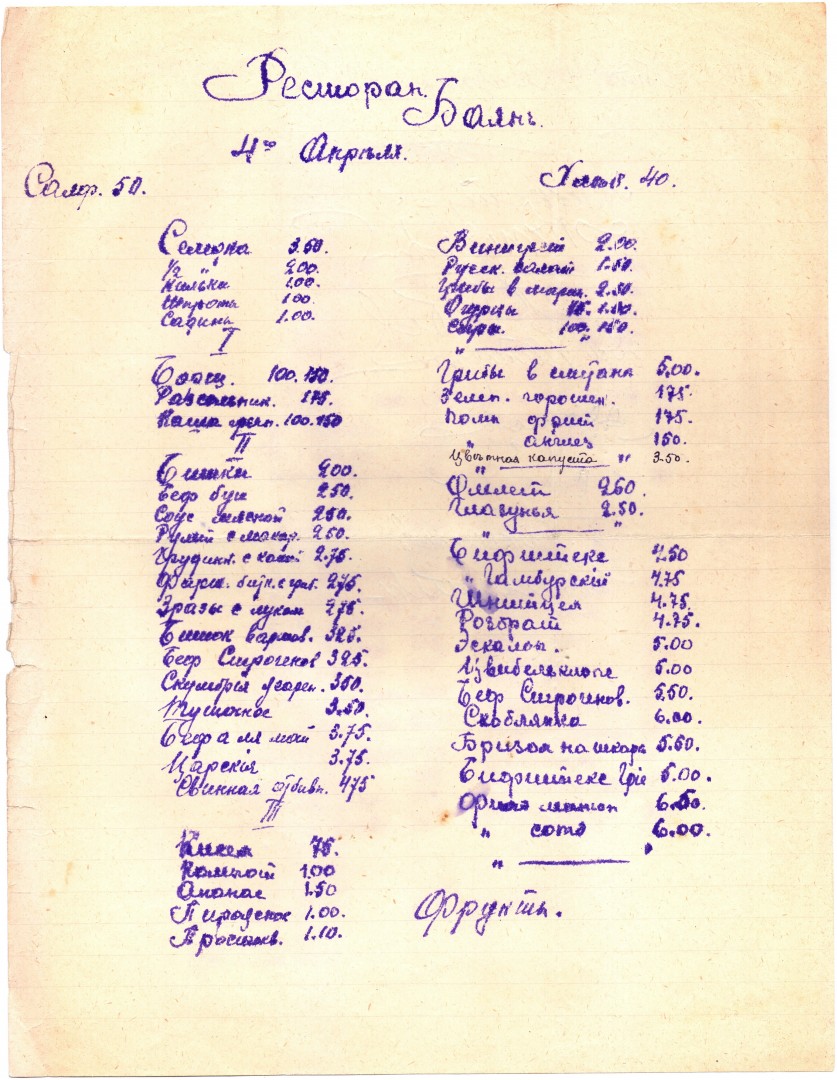 Ресторан.
Баянъ.
4го Апрѣля.
Салф. 50.
Хлѣбъ. 40.
Семюка 3.50.
1/2 " 200.
Килька 1.00.
Шпроты 1.00
Садины 1.00.
I
Борщ. 100. 150.
Разсольник. 175.
Каша греч. 100. 150
II
Битки 200.
Беф буи 250.
Соус мясной 250.
Рулет с макар. 250.
Грудинк. с кашей 2.75.
Фарш. битк. с гриб. 275.
Зразы с луком 275.
Битюк 325.
Беф Строгенов 325.
Скумбрия жарен. 350.
Тушонное 3.50.
Беф а ля мой 3.75.
Царскiя 3.75.
Свинная отбивн. 475
III
Кисел 75.
Компот 1.00
Ананас 1.50
Пирожное 1.00.
Простокв. 1.10.
Винигрет 2.00.
Русск. салат 1.50.
Грибы в марин. 2.50.
Огурцы 75. 1.50.
Сыры. 100. 150.
"
Грибы в сметана 5.00.
Зелен. горошек. 175.
Пом. фрит 175.
" англез 150.
Цвѣтная капуста " 3.50.
Омлет 260.
Глазунья 2.50.
"
Бифштекс 450
" Гамбурскiй 4.75
Шницел 4.75.
Розбрат 4.75.
Эскалоп. 5.00
Цвибельклопс 5.00
Беф Строгинов. 5.50.
Скоблянка 6.00.
Бризол на шкарѣ 5.50.
Бифштекс Грiе 5.00.
Филэ миньон 6.50.
" сотэ 6.00.
"
Фрукты.